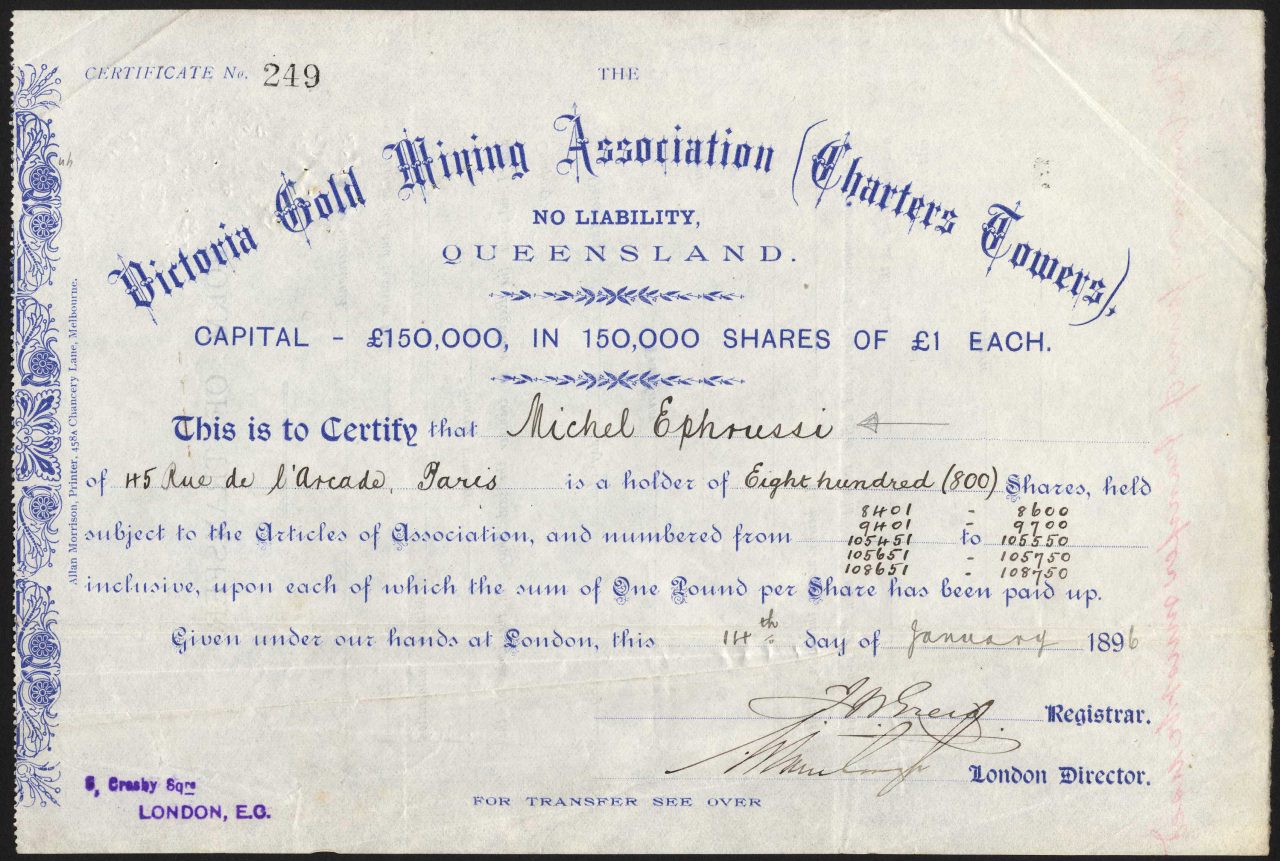 CERTIFICATE No. 249
THE
Victoria Gold Mining Association (Charters Towers).
NO LIABILITY,
QUEENSLAND.
CAPITAL - £150,000, IN 150,000 SHARES OF £1 EACH.
This is to Certify that Michel Ephrussi
of 45 Rue de l'Arcade, Paris is a holder of Eight hundred (800) Shares, held
8401 - 8600
9401 - 9700
subject to the Articles of Association, and numbered from 105451 to 105550
105651 - 105750
108651 - 108750
inclusive, upon each of which the sum of One Pound per Share has been paid up.
Given under our hands at London, this 14th day of January 1896
Registrar.
London Director.
5, Crosby Sqre
LONDON, E.C.
FOR TRANSFER SEE OVER
Allan Morrison, Printer, 458A Chancery Lane, Melbourne.